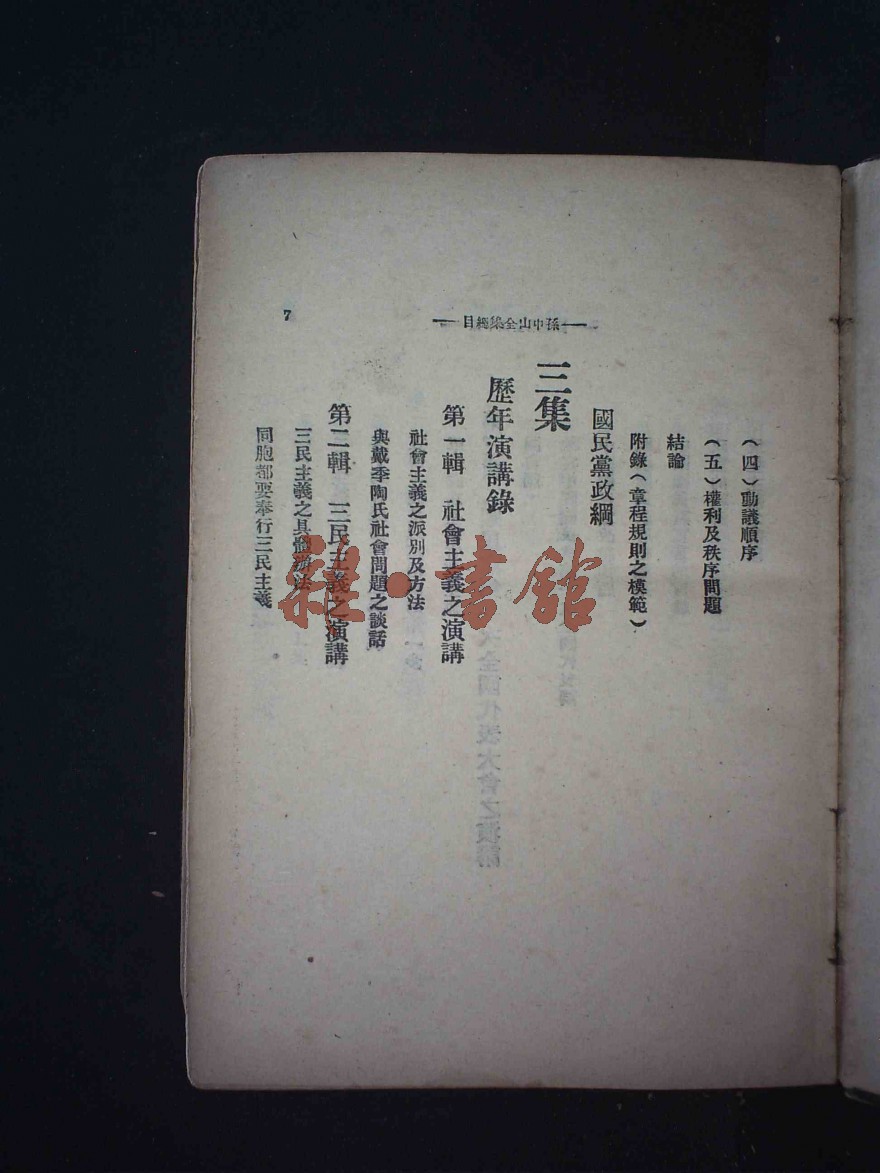 孫中山全集總目
7
（四）動議順序
（五）權利及秩序問題
結論
附錄（章程規則之模範）
國民黨政綱
三集
歷年演講錄
第一輯　社會主義之演講
社會主義之派別及方法
與戴季陶氏社會問題之談話
第二輯　三民主義之演講
三民主義之具體辦法
同胞都要奉行三民主義
雜·書館